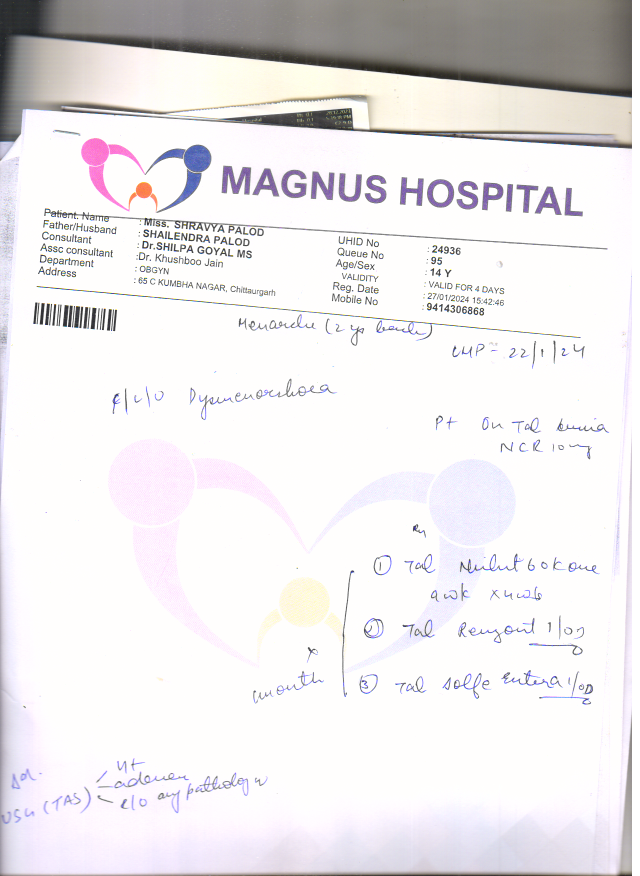 MAGNUS HOSPITAL
Patient. Name : Miss. SHRAVYA PALOD
Father/Husband : SHAILENDRA PALOD
Consultant : Dr.SHILPA GOYAL MS
Assc consultant :Dr. Khushboo Jain
Department : OBGYN
Address : 65 C KUMBHA NAGAR, Chittaurgarh
UHID No : 24936
Queue No : 95
Age/Sex : 14 Y
VALIDITY : VALID FOR 4 DAYS
Reg. Date : 27/01/2024 15:42:46
Mobile No : 9414306868
(2 ys back)
LMP - 22/1/24
Dysmenorrhoea
Pt On Tab
NCR 10mg
① Tab 60K one
x 4wk
② Tab 1/OD
③ Tab Solfe Entera 1/OD
x
1month
Adv.
USG (TAS)
ut
any pathology